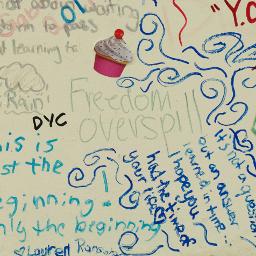 not about waiting
storm to pass
learning to
Rain
"Y.O
DYC
Freedom
overspill
is is
st the
eginning.
nly the beginning
Lauren Ransom
It's not a question
but an answer
learned in time...
I hope you
had the time of
your life